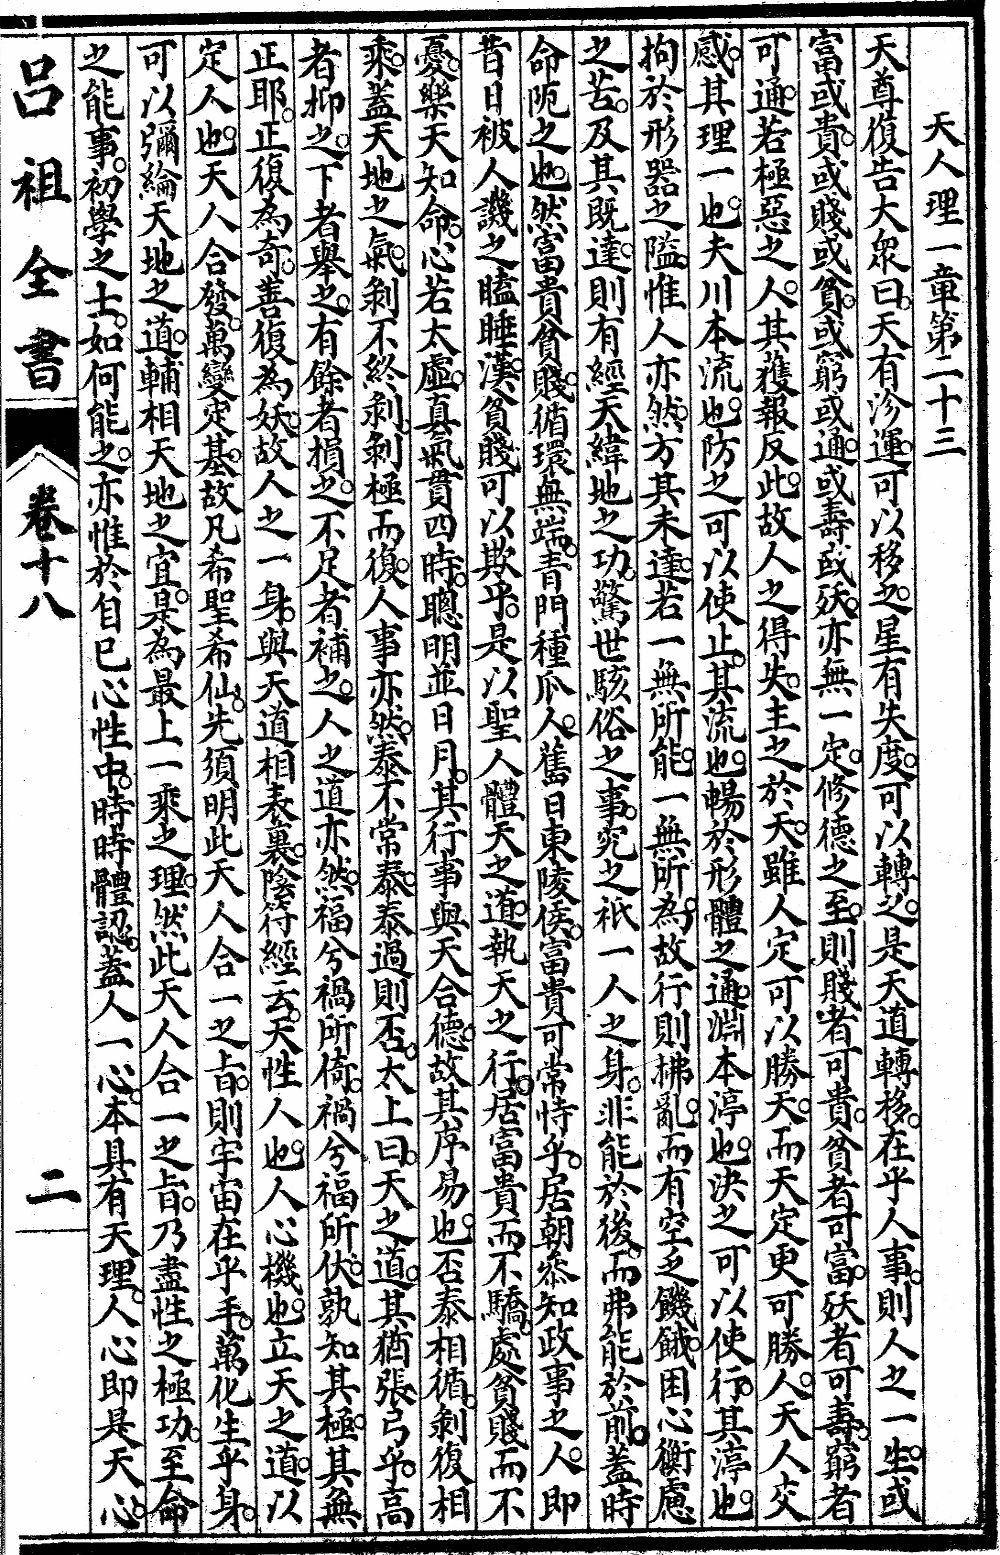 天人理一章第二十三
天尊復告大衆曰。天有沴運。可以移之。星有失度。可以轉之。是天道轉移。在乎人事。則人之一生。或
富或貴。或賤或貧。或窮或通。或壽或殀。亦無一定。修德之至。則賤者可貴。貧者可富。殀者可壽。窮者
可通。若極惡之人。其獲報反此。故人之得失。主之於天。雖人定可以勝天。而天定更可勝人。天人交
感。其理一也。夫川本流也。防之可以使止。其流也。暢於形體之通。淵本渟也。決之可以使行。其渟也。
拘於形器之隘。惟人亦然。方其未達。若一無所能。一無所為。故行則拂亂。而有空乏饑餓。困心衡慮
之苦。及其既達。則有經天緯地之功。驚世駭俗之事。究之祇一人之身。非能於後。而弗能於前。蓋時
命阨之也。然富貴貧賤。循環無端。青門種瓜人。舊日東陵侯。富貴可常恃乎。居朝叅知政事之人。即
昔日被人譏之瞌睡漢。貧賤可以欺乎。是以聖人體天之道。執天之行。居富貴而不驕。處貧賤而不
憂。樂天知命。心若太虛。真氣貫四時。聰明並日月。其行事與天合德。故其序易也。否泰相循。剝復相
乘。蓋天地之氣。剝不終剝。剝極而復。人事亦然。泰不常泰。泰過則否。太上曰。天之道。其猶張弓乎。高
者抑之。下者舉之。有餘者損之。不足者補之。人之道亦然。福兮禍所倚。禍兮福所伏。孰知其極。其無
正耶。正復為奇。善復為妖。故人之一身。與天道相表裏。陰符經云。天性人也。人心機也。立天之道。以
定人也。天人合發。萬變定基。故凡希聖希仙。先須明此天人合一之旨。則宇宙在乎手。萬化生乎身。
可以彌綸天地之道。輔相天地之宜。是為最上一乘之理。然此天人合一之旨。乃盡性之極功。至命
之能事。初學之士。如何能之。亦惟於自已心性中。時時體認。蓋人一心。本具有天理。人心即是天心。
呂祖全書
卷十八
二